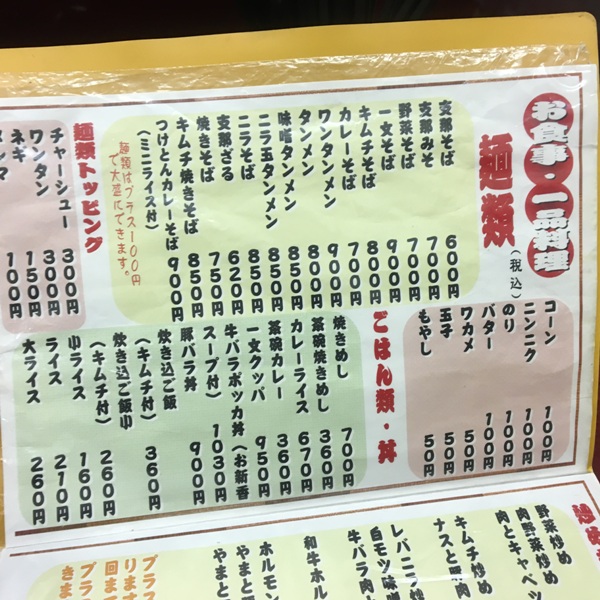 お食事・一品料理
麺類(税込)
支那そば 600円
支那みそ 700円
野菜そば 700円
一文そば 900円
キムチそば 800円
カレーそば 700円
ワンタンメン 900円
タンメン 800円
味噌タンメン 850円
ニラ玉タンメン 850円
ニラそば 850円
支那ざる 620円
焼きそば 750円
キムチ焼きそば 850円
つけとんカレーそば 900円
(ミニライス付)
麺類はプラス100円
で大盛にできます。
麺類トッピング
チャーシュー 300円
ワンタン 300円
ネギ 150円
メンマ 100円
コーン 100円
ニンニク 100円
のり 100円
バター 100円
ワカメ 50円
玉子 50円
もやし 50円
ごはん類・丼
焼きめし 700円
茶碗焼きめし 360円
カレーライス 670円
茶碗カレー 360円
一文クッパ 950円
牛バラポッカ丼(お新香
スープ付) 1030円
豚バラ丼 900円
炊き込ご飯
(キムチ付) 360円
炊き込ご飯小
(キムチ付) 260円
小ライス 160円
ライス 210円
大ライス 260円
野菜炒め
肉野菜炒め
肉とキャベツ
キムチ炒め
ナスと豚肉
レバニラ炒
白モツ味噌
牛バラ肉
和牛ホル
ホルモン
やまと
やまと
プラス
ります
回ま
プラ
きま